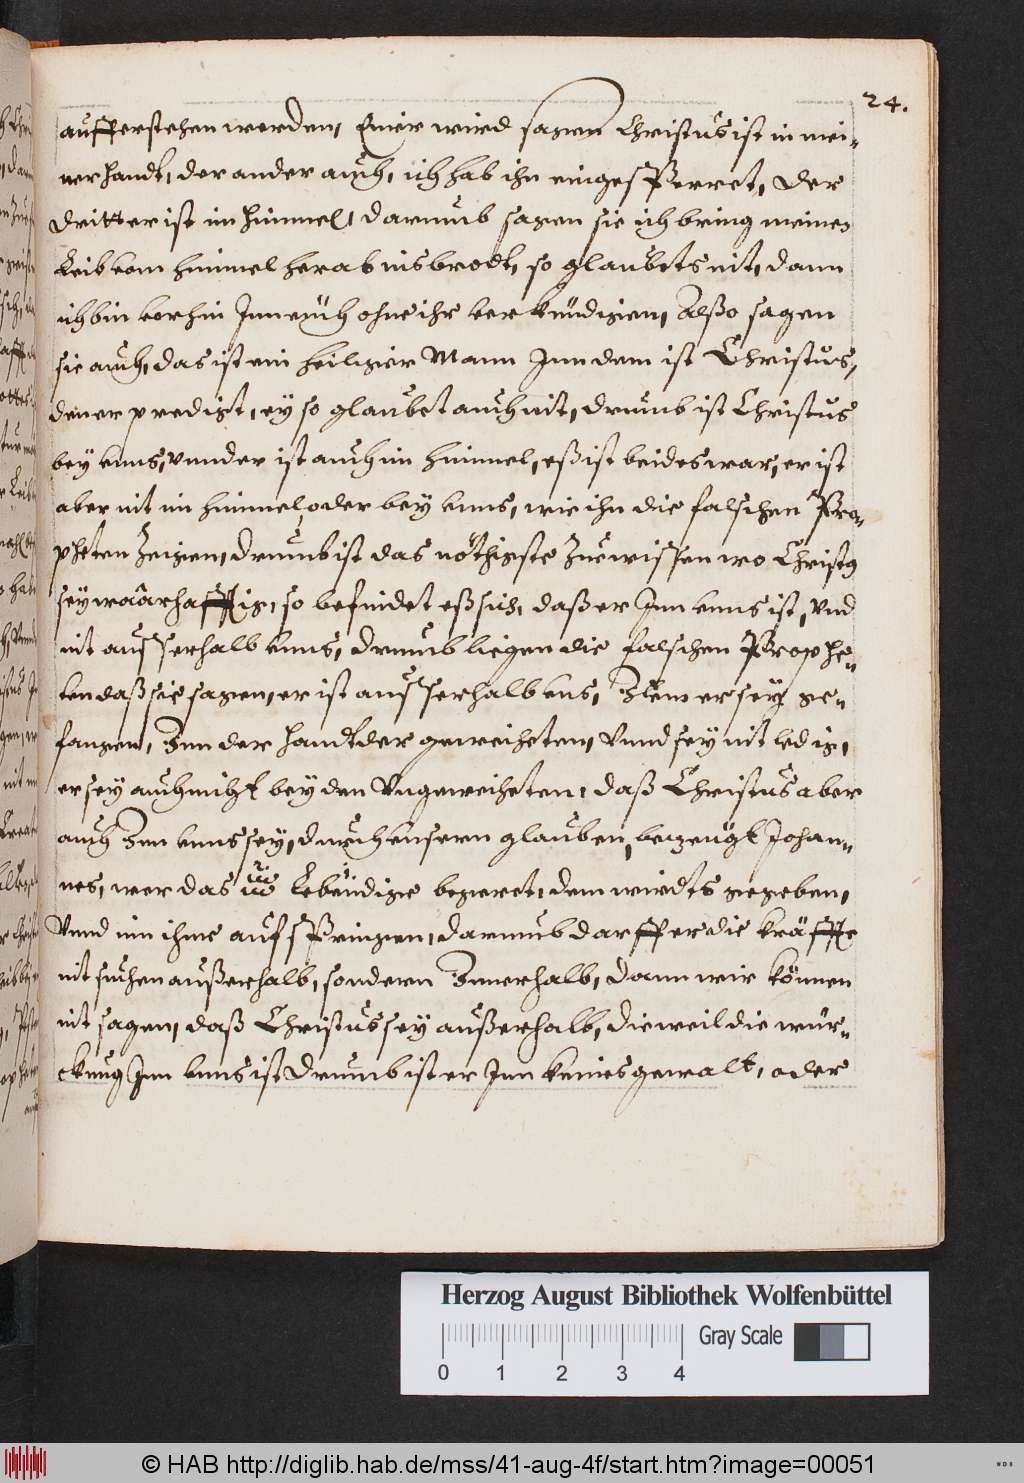 24.
aufferstehen werden, Einer wird sagen Christus ist in mei-
ner handt, der ander auch, ich hab ihn eingesperret, der
dritter ist im himmel, darumb sagen sie ich bring meinen
Leib vom himmel herab ins brodt, so glaubets nit, dann
ich bin vorhin Inn euch ohne ihr verkündigen, Alßo sagen
sie auch, das ist ein heiliger Mann Inn dem ist Christus,
den er predigt, ey so glaubet auch nit, drumb ist Christus
bey unns, unnd er ist auch im himmel, eß ist beides war, er ist
aber nit im himmel, oder bey unns, wie ihn die falschen Pro-
pheten Zeigen, drumb ist das nöthigste Zue wissen wo Christus
sey waarhafftig, so befindet eß sich, daß er Inn unns ist, Und
nit ausserhalb unns, drumb liegen die falschen Prophe-
ten daß sie sagen, er ist ausserhalb uns, Item er sey ge-
fangen, Inn der handt der geweiheten, Unnd sey nit ledig,
er sey auch nicht bey den Ungeweiheten, daß Christus aber
auch Inn unns sey, durch unsern glauben, bezeügt Johan-
nes, wer das Lebendige begeret, dem wirdts gegeben,
Unnd inn ihme aufspringen, darumb darff er die kräffte
nit suchen außerhalb, sondern Innerhalb, dann wir können
nit sagen, daß Christus sey außerhalb, dieweil die wür-
ckung Inn unns ist drumb ist er Inn keines gewalt, oder
Herzog August Bibliothek Wolfenbüttel
Gray Scale
0 1 2 3 4
© HAB http://diglib.hab.de/mss/41-aug-4f/start.htm?image=00051